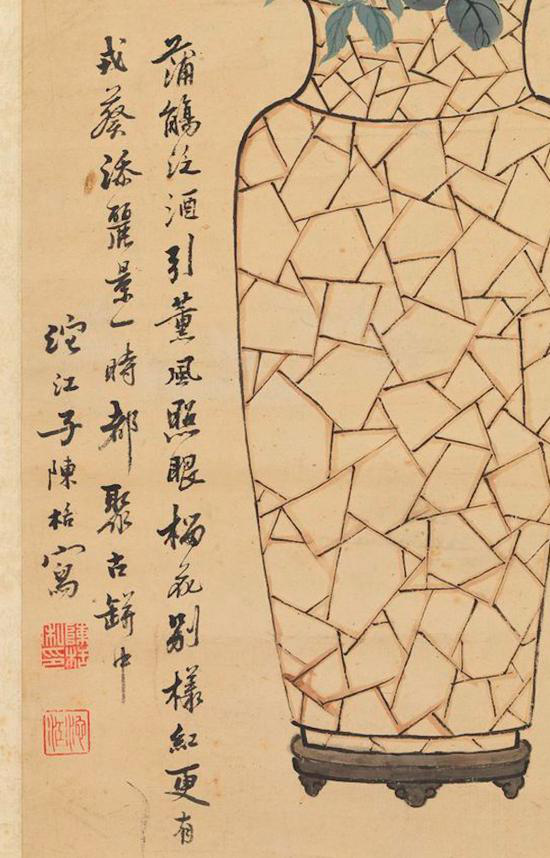 蒲觴泛酒引薰風照眼榴花别樣紅更有
戎葵添麗景一時都聚古缾中
沱江子陳栝寫